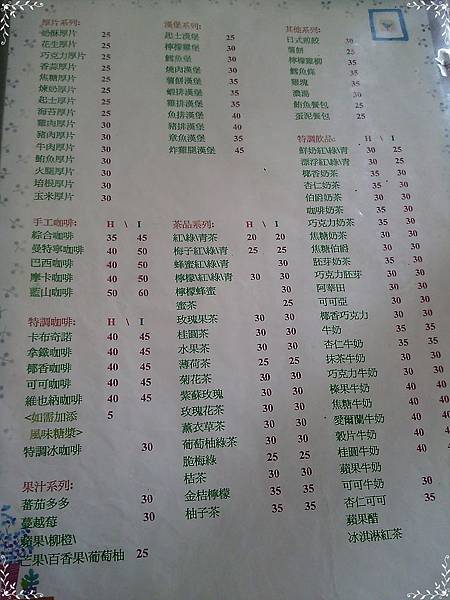 厚片系列:
奶酥厚片 25
花生厚片 25
巧克力厚片 25
香蒜厚片 25
焦糖厚片 25
煉奶厚片 25
起士厚片 25
海苔厚片 30
雞肉厚片 30
豬肉厚片 30
牛肉厚片 30
鮪魚厚片 30
火腿厚片 30
培根厚片 30
玉米厚片 30
手工咖啡: H \ I
綜合咖啡 35 45
曼特寧咖啡 40 50
巴西咖啡 40 50
摩卡咖啡 40 50
藍山咖啡 50 60
特調咖啡: H \ I
卡布奇諾 40 45
拿鐵咖啡 40 45
椰香咖啡 40 45
可可咖啡 40 45
維也納咖啡 40 45
<如需加添 5
風味糖漿>
特調冰咖啡 30
果汁系列:
蕃茄多多 30
蔓越莓 30
蘋果\柳橙\
芒果\百香果\葡萄柚 25
漢堡系列:
起士漢堡 25
檸檬雞堡 30
鱈魚堡 30
燒肉漢堡 30
薯餅漢堡 30
蝦排漢堡 35
雞排漢堡 35
魚排漢堡 40
豬排漢堡 40
章魚漢堡 35
炸雞漢堡 45
茶品系列: H \ I
紅\綠\青茶 20 20
梅子紅\綠\青 25 25
蜂蜜紅\綠\青 30
檸檬紅\綠\青 30 30
檸檬蜂蜜 30
蜜茶 25
玫瑰果茶 30 30
桂圓茶 30 30
水果茶 30 30
薄荷茶 25 25
菊花茶 30 30
紫蘇玫瑰 30 30
玫瑰花茶 30 30
薰衣草茶 30 30
葡萄柚綠茶 30 30
脆梅綠 25 25
桔茶 30 30
金桔檸檬 35 35
柚子茶 35 35
其他系列:
日式煎餃 30
薯餅 25
檸檬雞柳 35
鱈魚條 35
雞塊 30
濃湯 30
鮪魚餐包 25
蛋泥餐包 25
特調飲品: H \ I
鮮奶紅\綠\青 30 25
漂浮紅\綠\青 25
椰香奶茶 35 30
杏仁奶茶 35 30
伯爵奶茶 35 30
咖啡奶茶 35 30
巧克力奶茶 35 30
焦糖奶茶 35 30
焦糖伯爵 35 30
胚芽奶茶 35 30
巧克力胚芽 30
阿華田 30
可可亞 30
椰香巧克力 30
牛奶 35
杏仁牛奶 35
抹茶牛奶
巧克力牛奶
榛果牛奶
焦糖牛奶
愛爾蘭牛奶
穀片牛奶
桂圓牛奶
蘋果牛奶
可可牛奶
杏仁可可
蘋果醋
冰淇淋紅茶